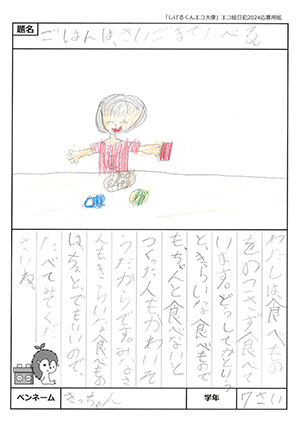 「しげるくんエコ大使」エコ絵日記2024応募用紙
題名
ごはんは、さいごまでたべる。
わたしは食べもの
をのこさず食べて
います。どうしてかという
と、きらいな食べもので
も、ちゃんと食べないと
つくった人もかわいそ
うだからです。みなさ
んもきらいな食べもの
は、ちょとでもいいので、
たべてみてくだ
さいね。
ペンネーム
きっちゃん
学年
7さい